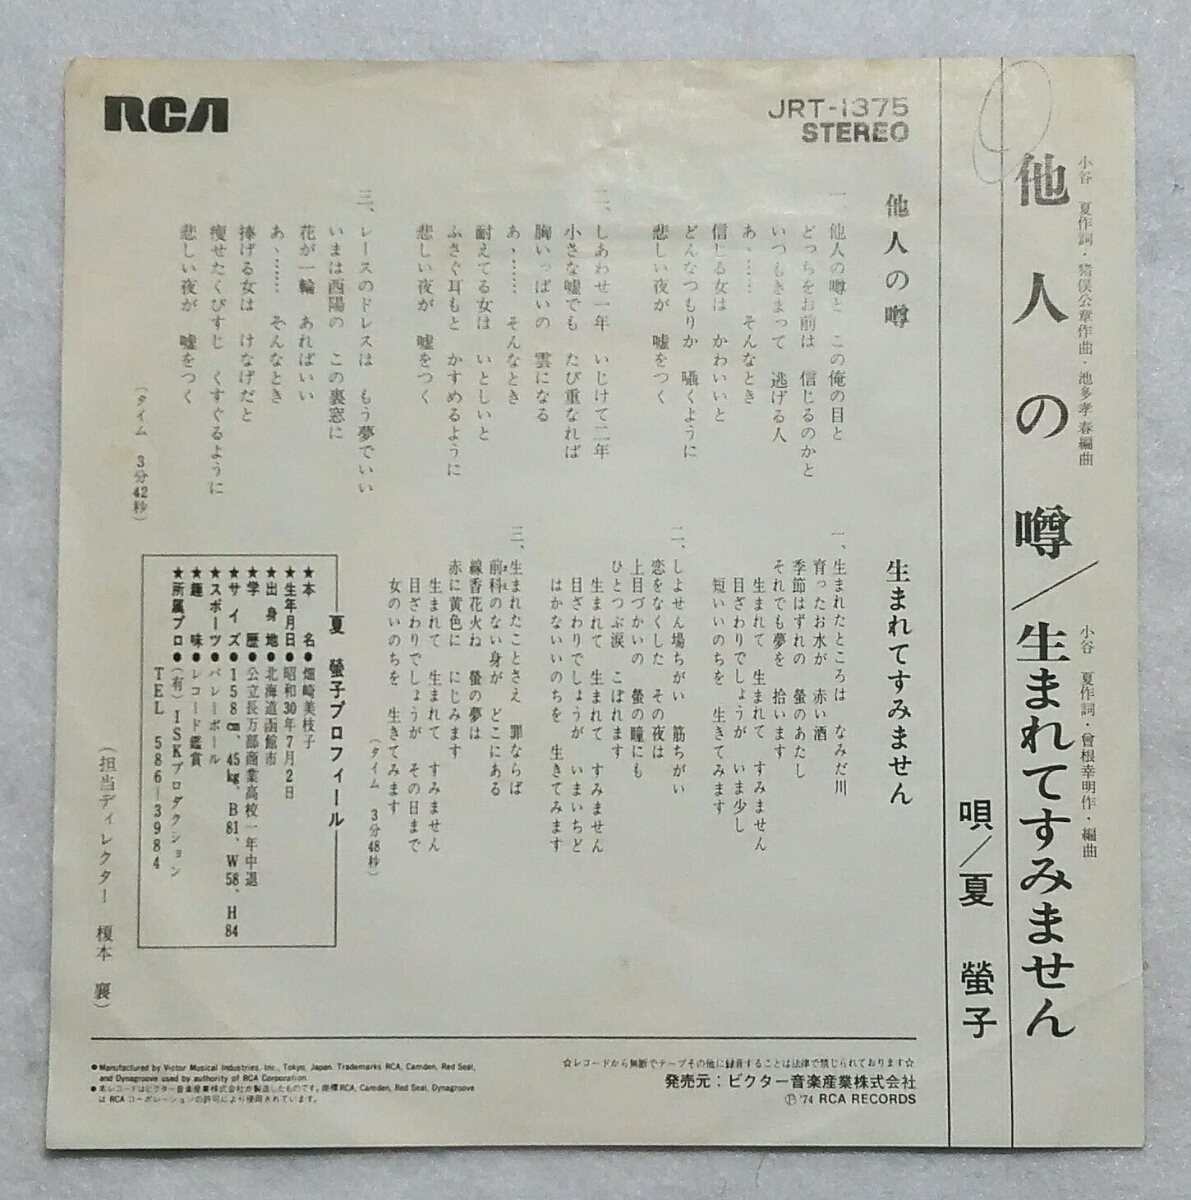 RCA
JRT-1375
STEREO
小谷 夏作詞・猪俣公章作曲・池多孝春編曲
他人の噂／生まれてすみません
小谷 夏作詞・曾根幸明作・編曲
唄／夏 螢子
他人の噂
一、他人の噂と この俺の目と
どっちをお前は 信じるのかと
いつもきまって 逃げる人
あ・…… そんなとき
信じる女は かわいいと
どんなつもりか 囁くように
悲しい夜が 嘘をつく
二、しあわせ一年 いじけて二年
小さな嘘でも たび重なれば
胸いっぱいの 雲になる
あ・…… そんなとき
耐えてる女は いとしいと
ふさぐ耳もと かすめるように
悲しい夜が 嘘をつく
三、レースのドレスは もう夢でいい
いまは西陽の この裏窓に
花が一輪 あればいい
あ・…… そんなとき
捧げる女は けなげだと
痩せたくびすじ くすぐるように
悲しい夜が 嘘をつく
（タイム 3分42秒）
生まれてすみません
一、生まれたところは なみだ川
育ったお水が 赤い酒
季節はずれの 螢のあたし
それでも夢を 拾います
生まれて 生まれて すみません
目ざわりでしょうが いま少し
短いいのちを 生きてみます
二、しょせん場ちがい 筋ちがい
恋をなくした その夜は
上目づかいの 螢の瞳にも
ひとつぶ涙 こぼれます
生まれて 生まれて すみません
目ざわりでしょうが いまいちど
はかないいのちを 生きてみます
三、生まれたことさえ 罪ならば
前科のない身が どこにある
線香花火ね 螢の夢は
赤に黄色に にじみます
生まれて 生まれて すみません
目ざわりでしょうが その日まで
女のいのちを 生きてみます
（タイム 3分48秒）
夏 螢子プロフィール
★本名●畑崎美枝子
★生年月日●昭和30年7月2日
★出身地●北海道函館市
★学歴●公立長万部商業高校一年中退
★サイズ●158cm 45kg、B81、W58、H84
★スポーツ●バレーボール
★趣味●レコード鑑賞
★所属プロ●（有）ISKプロダクション
TEL 586-3984
（担当ディレクター 榎本 襄）
●Manufactured by Victor Musical Industries, Inc., Tokyo, Japan. Trademarks RCA, Camden, Red Seal,
and Dynagroove used by authority of RCA Corporation.
●本レコードはビクター音楽産業株式会社が製造したものです。商標RCA, Camden, Red Seal, Dynagroove
は RCA コーポレーションの許可により使用されています。
☆レコードから無断でテープその他に録音することは法律で禁じられております☆
発売元：ビクター音楽産業株式会社
Ⓟ '74 RCA RECORDS